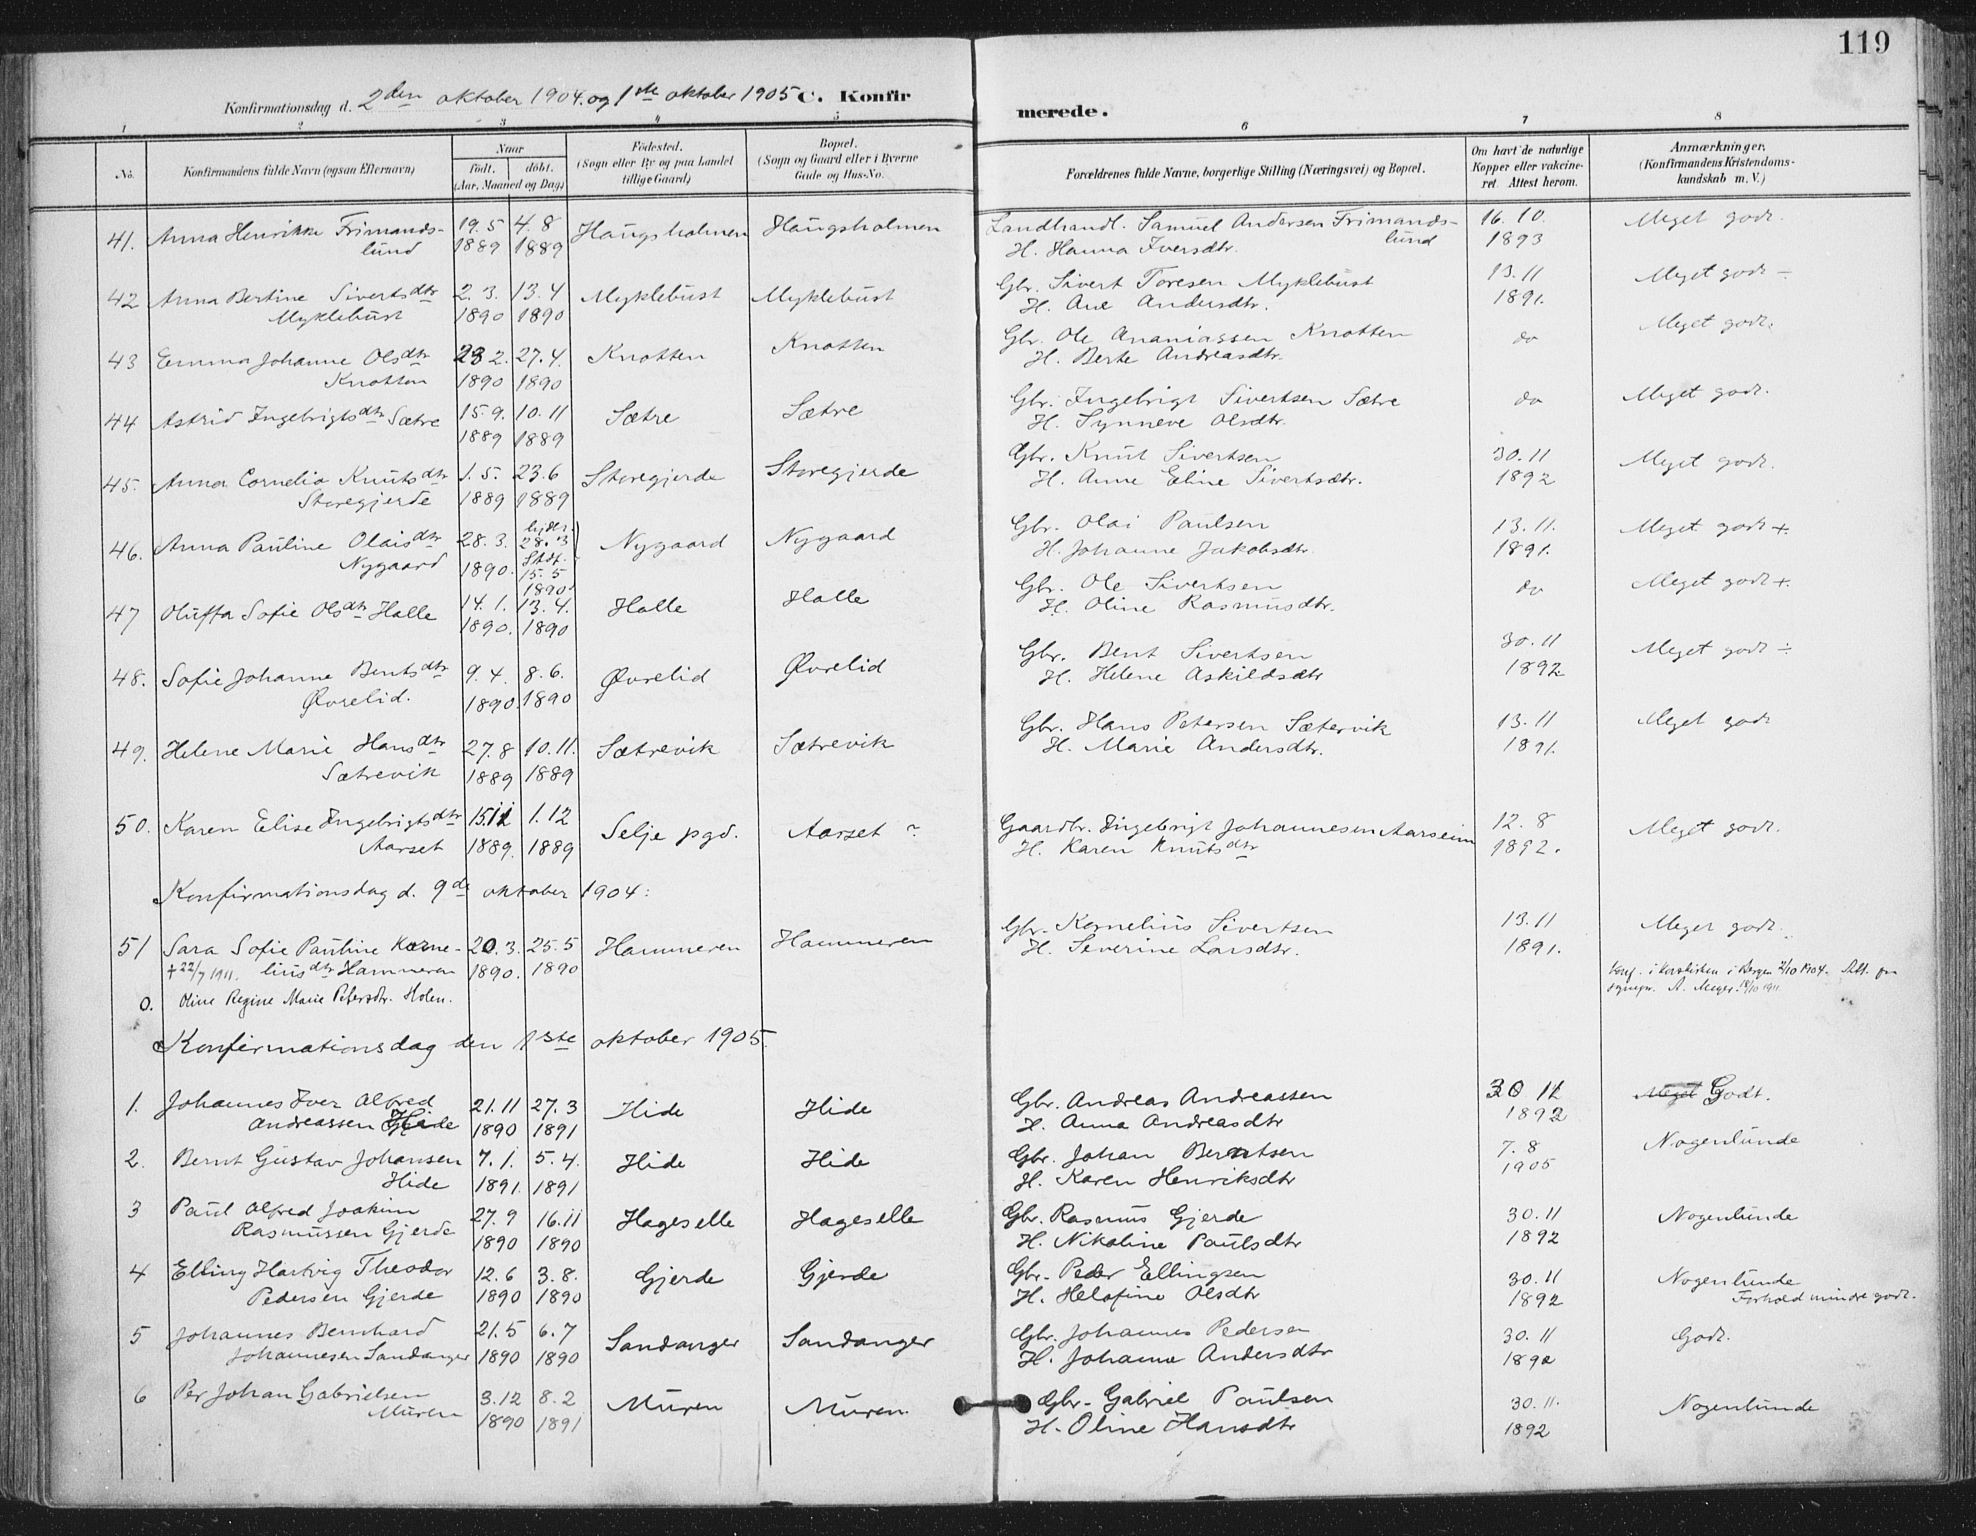 119
Konfirmationsdag d. 2den oktober 1904. og 1ste oktober 1905 C. Konfirmerede.
1 2 3 4 5 6 7 8
No. Konfirmandens fulde Navn (ogsaa Efternavn) Naar født, døbt. (Aar, Maaned og Dag) Fødested. (Sogn eller By og paa Landet tillige Gaard) Bopæl. (Sogn og Gaard eller i Byerne Gade og Hus-No. Forældrenes fulde Navne, borgerlige Stilling (Næringsvei) og Bopæl. Om havt de naturlige Kopper eller vakcineret. Attest herom. Anmærkninger. (Konfirmandens Kristendomskundskab m. V.)
41. Anna Henrikke Frimands- 19.5 4.8 Haugsholmen Haugsholmen Landhandl. Samuel Andersen Frimands- 16.10. Meget godt.
lund 1889 1889 H. Hanna Iversdtr. lund 1893
42 Anna Bertine Sivertsdtr 2.3. 13.4 Myklebust Myklebust Gbr. Sivert Toresen Myklebust 13.11 Meget godt ÷
Myklebust 1890 1890 H. Ane Andersdtr. 1891.
43 Emma Johanne Olsdtr 23 2. 27.4 Knotten Knotten Gbr. Ole Ananiassen Knotten do Meget godt.
Knotten 1890 1890 H. Berte Andreasdtr.
44 Astrid Ingebrigtsdtr Sætre 15.9. 10.11 Sætre Sætre Gbr. Ingebrigt Sivertsen Sætre do Meget godt.
1889 1889 H. Synneve Olsdtr.
45. Anna Cornelia Knutsdtr 1.5. 23.6 Storegjerde Storegjerde Gbr. Knut Sivertsen 30.11 Meget godt.
Storegjerde 1889 1889 H. Anne Eline Sivertsdtr. 1892
46. Anna Pauline Olaisdtr 28.3. 28.3 Nygaard Nygaard Gbr. Olai Paulsen 13.11. Meget godt +.
Nygaard 1890. Stadf. 15.5 1890 H. Johanne Jakobsdtr. 1891.
47 Oluffa Sofie Olsdtr Halle 14.1. 13.4. Halle Halle Gbr. Ole Sivertsen do Meget godt +.
1890. 1890 H. Oline Rasmusdtr.
48. Sofie Johanne Bentsdtr 9.4. 8.6. Øvrelid Øvrelid Gbr. Bent Sivertsen 30.11 Meget godt ÷
Øvrelid. 1890. 1890 H. Helene Askildsdtr 1892
49. Helene Marie Hansdtr 27.8 10.11. Sætrevik Sætrevik Gbr. Hans Petersen Sætervik 13.11 Meget godt
Sætrevik 1889 1889 H. Marie Andersdtr. 1891.
50. Karen Elise Ingebrigtsdtr 15.11 1.12 Selje pgd. Aarset ? Gaardbr. Ingebrigt Johannesen Aarseim 12.8 Meget godt.
Aarset 1889. 1889 H. Karen Knutsdtr 1892.
Konfirmationsdag d. 9de oktober 1904:
51 Sara Sofie Pauline Korne- 20.3. 25.5 Hammeren Hammeren Gbr. Kornelius Sivertsen 13.11 Meget godt.
† 22/7 1911. liusdtr Hammeren 1890. 1890 H. Severine Larsdtr. 1891.
0. Oline Regine Marie Petersdtr. Holen. Konf. i Korskirken i Bergen 2/10 1904. Att. fra
sognepr. A. Meyer. 18/10 1911
Konfirmationsdag den 1ste oktober 1905.
1. Johannes Iver Alfred 21.11 27.3 Hide Hide Gbr. Andreas Andreassen 30 11 Meget Godt.
Andreassen Hide 1890 1891 H. Anna Andreasdtr 1892
2. Bernt Gustav Johansen 7.1. 5.4. Hide Hide Gbr. Johan Berntsen 7.8 Nogenlunde
Hide 1891. 1891 H. Karen Henriksdtr 1905
3 Paul Alfred Joakim 27.9 16.11 Hageselle Hageselle Gbr. Rasmus Gjerde 30.11 Nogenlunde
Rasmussen Gjerde 1890 1890 H. Nikoline Paulsdtr 1892
4 Elling Hartvig Theodor 12.6 3.8. Gjerde Gjerde Gbr. Peder Ellingsen 30.11 Nogenlunde
Pedersen Gjerde 1890 1890 H. Helofine Olsdtr 1892 Forhold mindre godt.
5 Johannes Bernhard 21.5 6.7 Sandanger Sandanger Gbr. Johannes Pedersen 30.11 Godt.
Johannesen Sandanger 1890 1890 H. Johanna Andersdtr 1892
6 Per Johan Gabrielsen 3.12 8.2 Muren Muren. Gbr. Gabriel Paulsen 30.11. Nogenlunde
Muren 1890 1891 H. Oline Hansdtr 1892